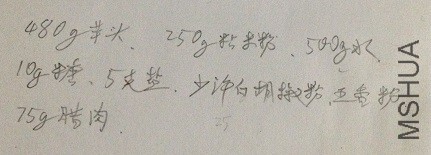 480g芋头、250g粘米粉、500g水、
10g糖、5克盐、少许白胡椒粉、五香粉
75g腊肉.
25
MSHUA